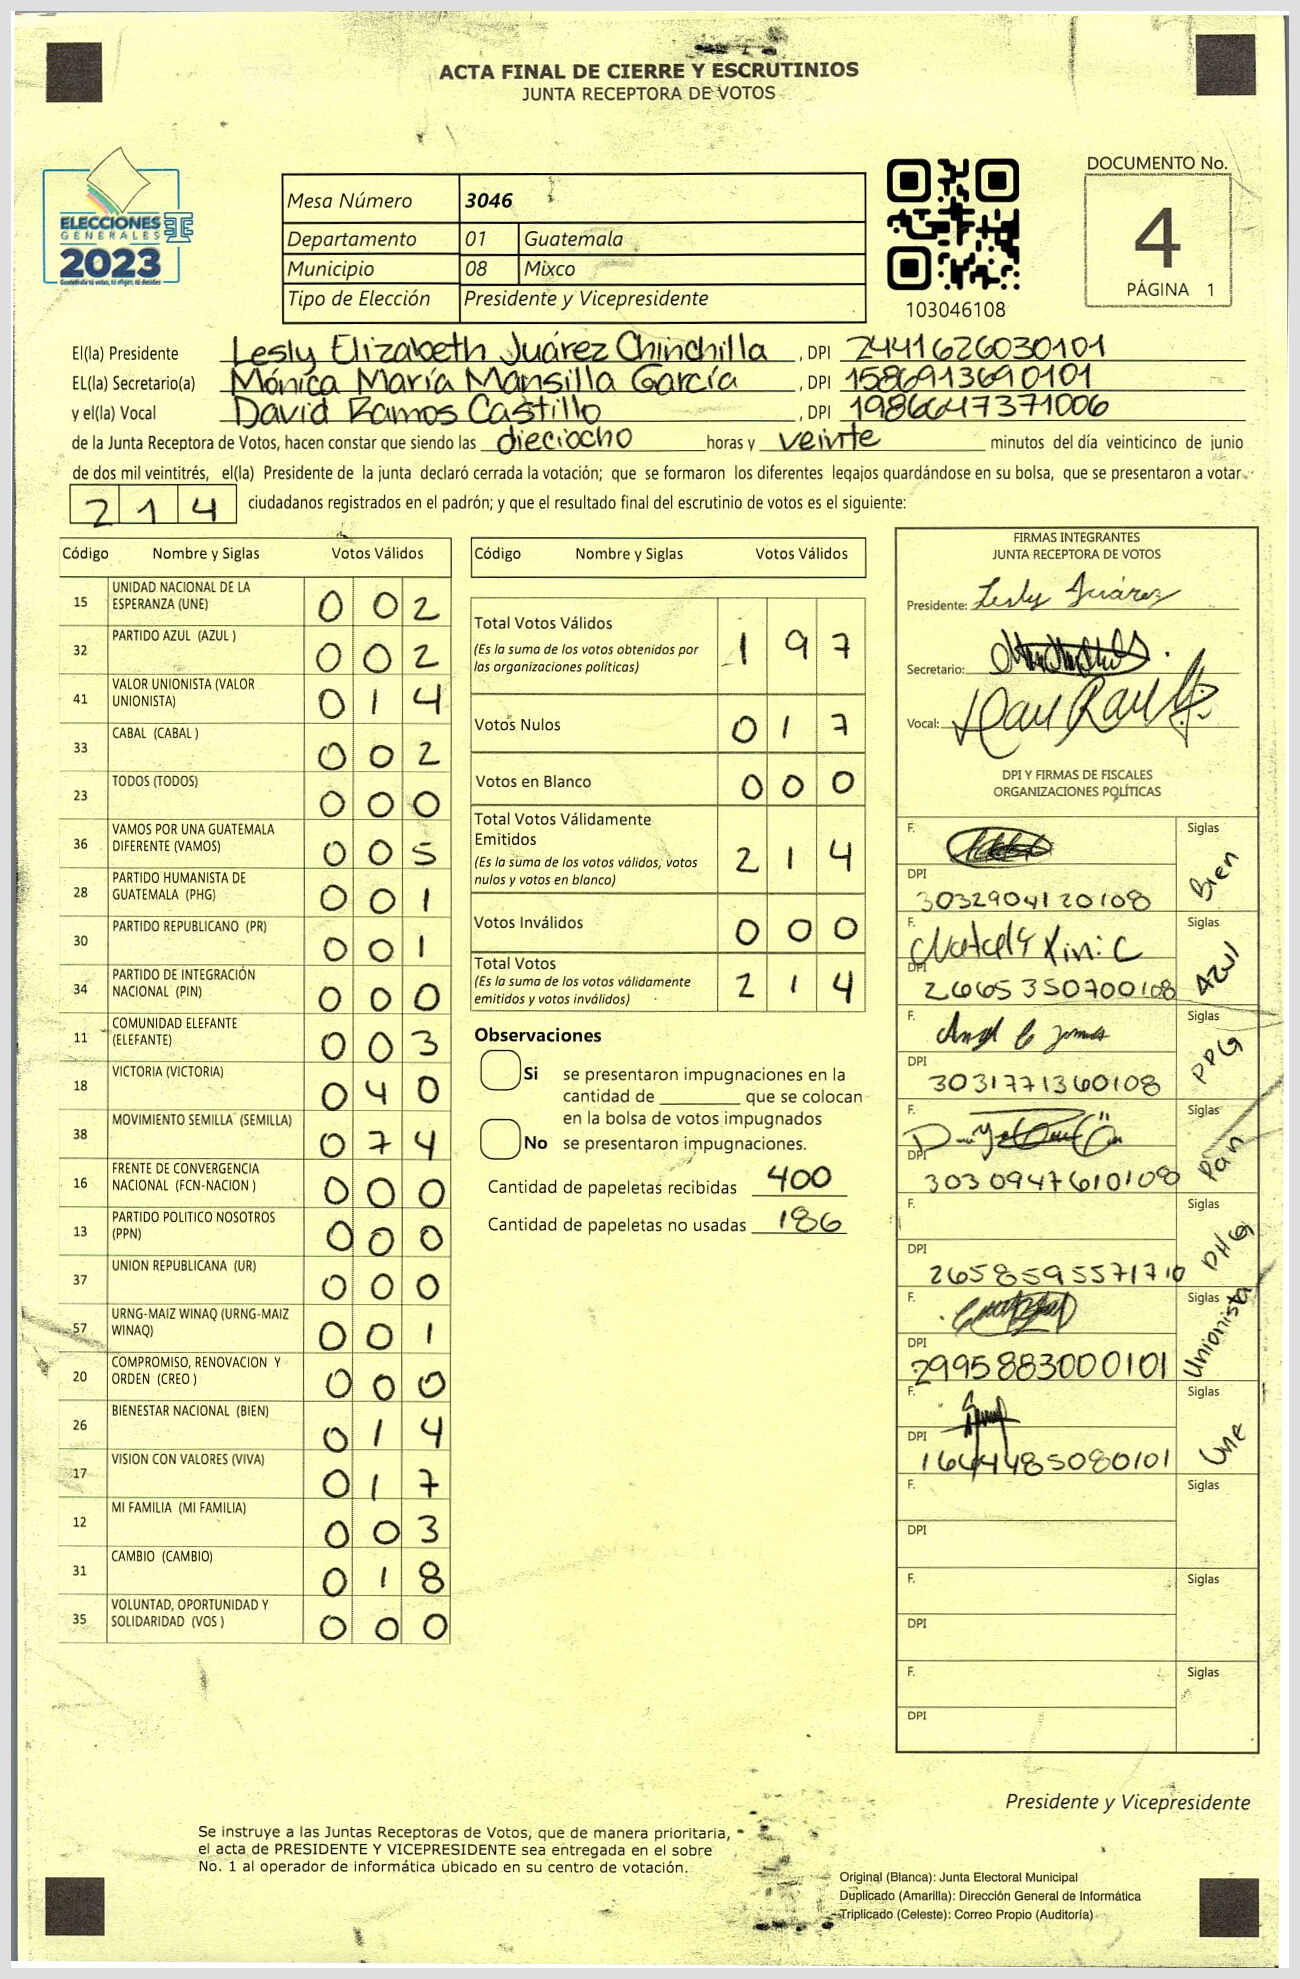 ACTA FINAL DE CIERRE Y ESCRUTINIOS
JUNTA RECEPTORA DE VOTOS
ELECCIONES
GENERALES
2023
Mesa Número 3046
Departamento 01 Guatemala
Municipio 08 Mixco
Tipo de Elección Presidente y Vicepresidente
103046108
DOCUMENTO No.
4
PÁGINA 1
El(la) Presidente Lesly Elizabeth Juárez Chinchilla , DPI 2441626030101
EL(la) Secretario(a) Mónica María Mansilla García , DPI 1586913690101
y el(la) Vocal David Ramos Castillo , DPI 1986647371006
de la Junta Receptora de Votos, hacen constar que siendo las dieciocho horas y veinte minutos del día veinticinco de junio
de dos mil veintitrés, el(la) Presidente de la junta declaró cerrada la votación; que se formaron los diferentes legajos quardándose en su bolsa, que se presentaron a votar
214 ciudadanos registrados en el padrón; y que el resultado final del escrutinio de votos es el siguiente:
Código Nombre y Siglas Votos Válidos
15 UNIDAD NACIONAL DE LA ESPERANZA (UNE) 002
32 PARTIDO AZUL (AZUL ) 002
41 VALOR UNIONISTA (VALOR UNIONISTA) 014
33 CABAL (CABAL ) 002
23 TODOS (TODOS) 000
36 VAMOS POR UNA GUATEMALA DIFERENTE (VAMOS) 005
28 PARTIDO HUMANISTA DE GUATEMALA (PHG) 001
30 PARTIDO REPUBLICANO (PR) 001
34 PARTIDO DE INTEGRACIÓN NACIONAL (PIN) 000
11 COMUNIDAD ELEFANTE (ELEFANTE) 003
18 VICTORIA (VICTORIA) 040
38 MOVIMIENTO SEMILLA (SEMILLA) 074
16 FRENTE DE CONVERGENCIA NACIONAL (FCN-NACION ) 000
13 PARTIDO POLITICO NOSOTROS (PPN) 000
37 UNION REPUBLICANA (UR) 000
57 URNG-MAIZ WINAQ (URNG-MAIZ WINAQ) 001
20 COMPROMISO, RENOVACION Y ORDEN (CREO ) 000
26 BIENESTAR NACIONAL (BIEN) 014
17 VISION CON VALORES (VIVA) 017
12 MI FAMILIA (MI FAMILIA) 003
31 CAMBIO (CAMBIO) 018
35 VOLUNTAD, OPORTUNIDAD Y SOLIDARIDAD (VOS ) 000
Código Nombre y Siglas Votos Válidos
Total Votos Válidos 197
(Es la suma de los votos obtenidos por
las organizaciones políticas)
Votos Nulos 017
Votos en Blanco 000
Total Votos Válidamente
Emitidos 214
(Es la suma de los votos válidos, votos
nulos y votos en blanco)
Votos Inválidos 000
Total Votos 214
(Es la suma de los votos válidamente
emitidos y votos inválidos)
Observaciones
Si se presentaron impugnaciones en la
cantidad de ________ que se colocan
en la bolsa de votos impugnados
No se presentaron impugnaciones.
Cantidad de papeletas recibidas 400
Cantidad de papeletas no usadas 186
FIRMAS INTEGRANTES
JUNTA RECEPTORA DE VOTOS
Presidente: Lesly Juárez
Secretario:
Vocal:
DPI Y FIRMAS DE FISCALES
ORGANIZACIONES POLÍTICAS
F. Siglas Bien
DPI 3032904120108
F. Siglas Azul
DPI 2665350700108
F. Siglas PPG
DPI 3031771360108
F. Siglas Pan
DPI 3030947610108
F. Siglas PHG
DPI 2658595571710
F. Siglas Unionista
DPI 2995883000101
F. Siglas Une
DPI 1644485080101
F. Siglas
DPI
F. Siglas
DPI
F. Siglas
DPI
Presidente y Vicepresidente
Se instruye a las Juntas Receptoras de Votos, que de manera prioritaria,
el acta de PRESIDENTE Y VICEPRESIDENTE sea entregada en el sobre
No. 1 al operador de informática ubicado en su centro de votación.
Original (Blanca): Junta Electoral Municipal
Duplicado (Amarilla): Dirección General de Informática
Triplicado (Celeste): Correo Propio (Auditoría)